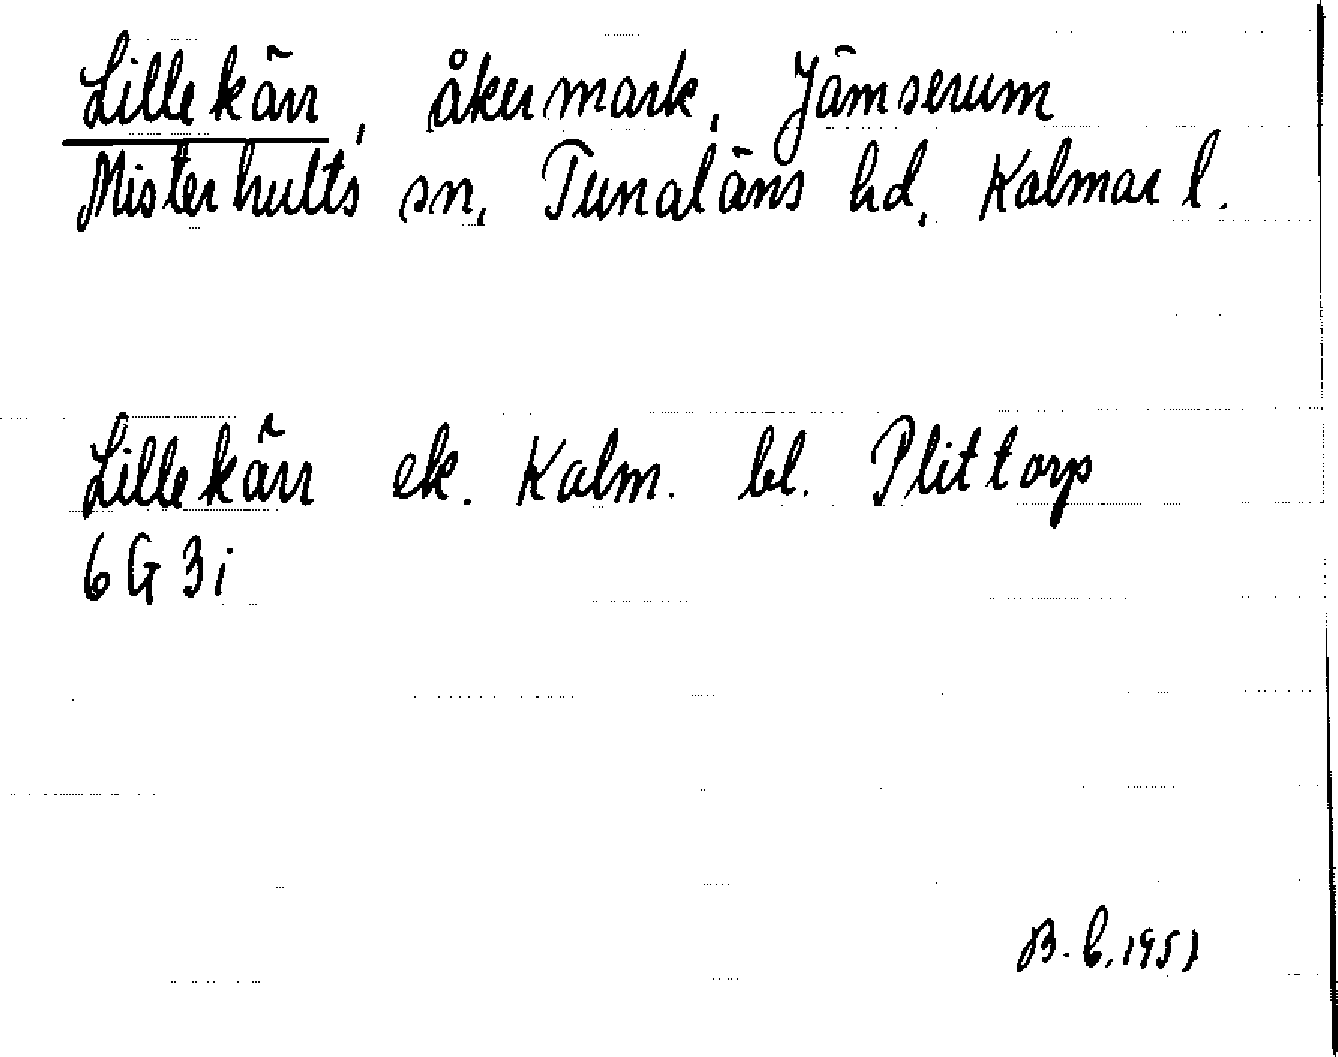 Lillekärr, åkermark, Jämserum
Misterhults sn, Tunaläns hd, Kalmar l.
Lillekärr ek. Kalm. bl. Plittorp
6G3i
B. 1951